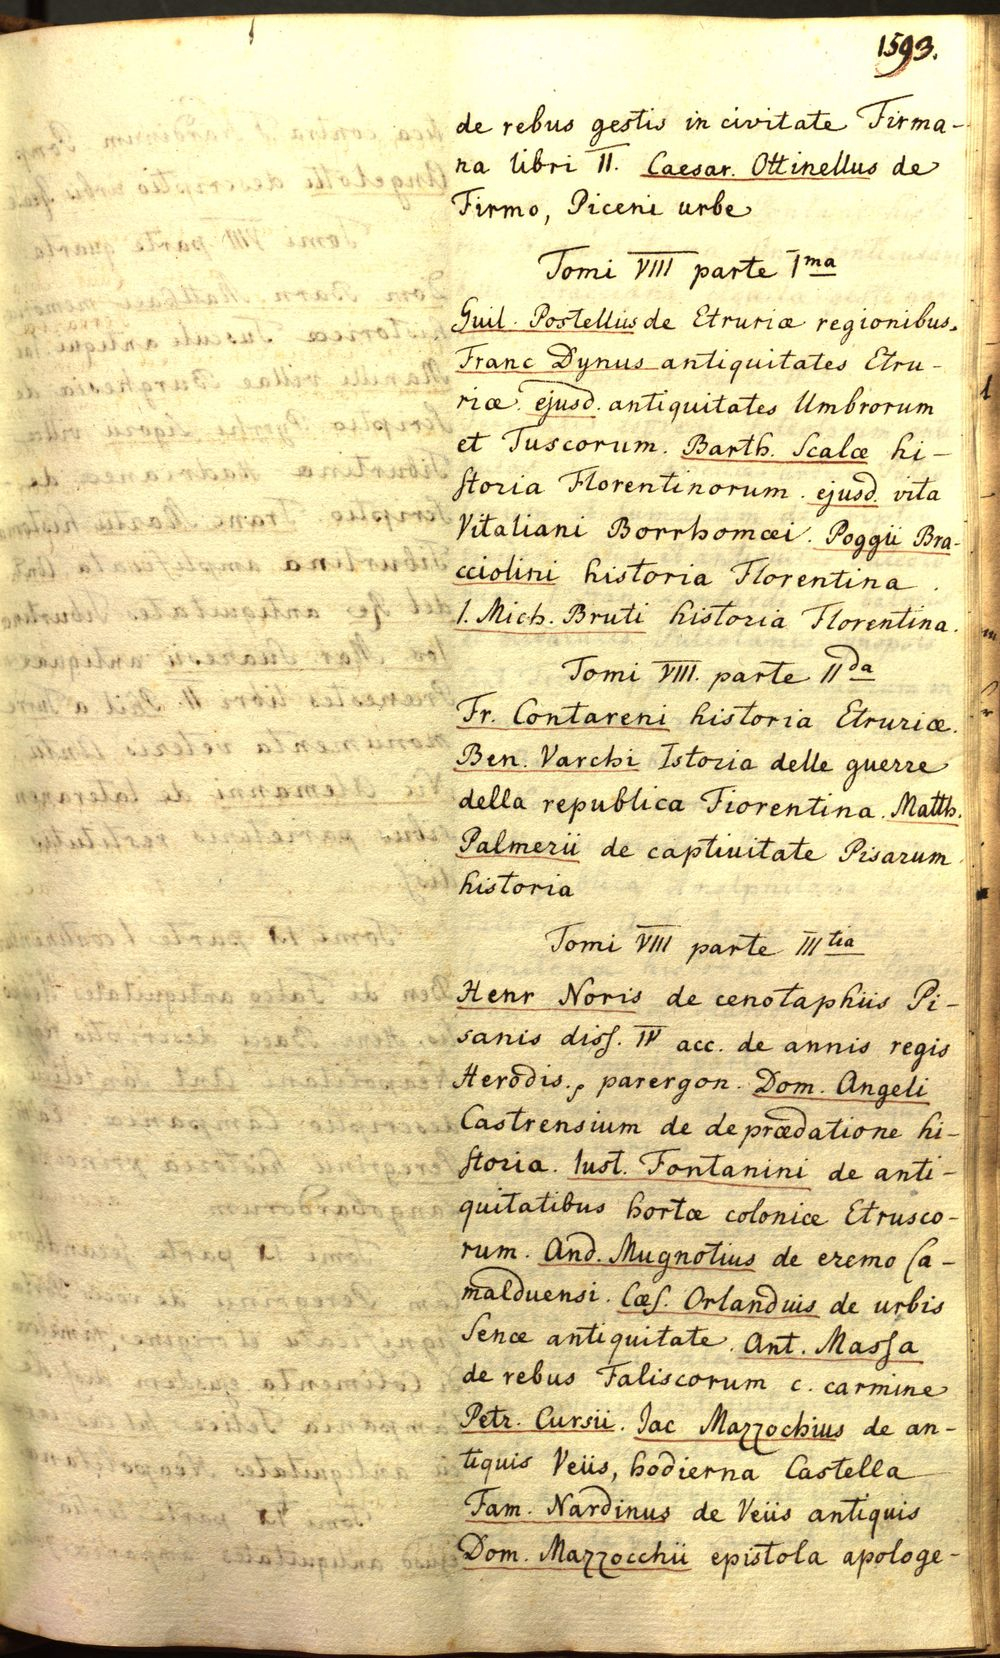 1593.
de rebus gestis in civitate Firma-
na libri II. Caesar. Ottinellus de
Firmo, Piceni urbe
Tomi VIII parte I ma
Guil. Postellus de Etruriæ regionibus.
Franc Dynus antiquitates Etru-
riæ. ejusd. antiquitates Umbrorum
et Tuscorum. Barth. Scalæ hi-
storia Florentinorum. ejusd. vita
Vitaliani Borrhomæi. Poggii Bra-
cciolini historia Florentina.
I. Mich. Bruti historia Florentina.
Tomi VIII. parte II da
Fr. Contareni historia Etruriæ.
Ben. Varchi Istoria delle guerre
della republica Fiorentina. Matth.
Palmerii de captiuitate Pisarum
historia
Tomi VIII parte III tia
Henr Noris de cenotaphiis Pi-
sanis diss. IV acc. de annis regis
Herodis, parergon. Dom. Angeli
Castrensium de deprædatione hi-
storia. Iust. Fontanini de anti-
quitatibus hortæ coloniæ Etrusco-
rum. And. Mugnotius de eremo Ca-
malduensi. Cæs. Orlanduis de urbis
Senæ antiquitate. Ant. Massa
de rebus Faliscorum c. carmine
Petr. Cursii. Iac Mazzochius de an-
tiquis Veiis, hodierna Castella
Fam. Nardinus de Veiis antiquis
Dom. Mazzocchii epistola apologe-